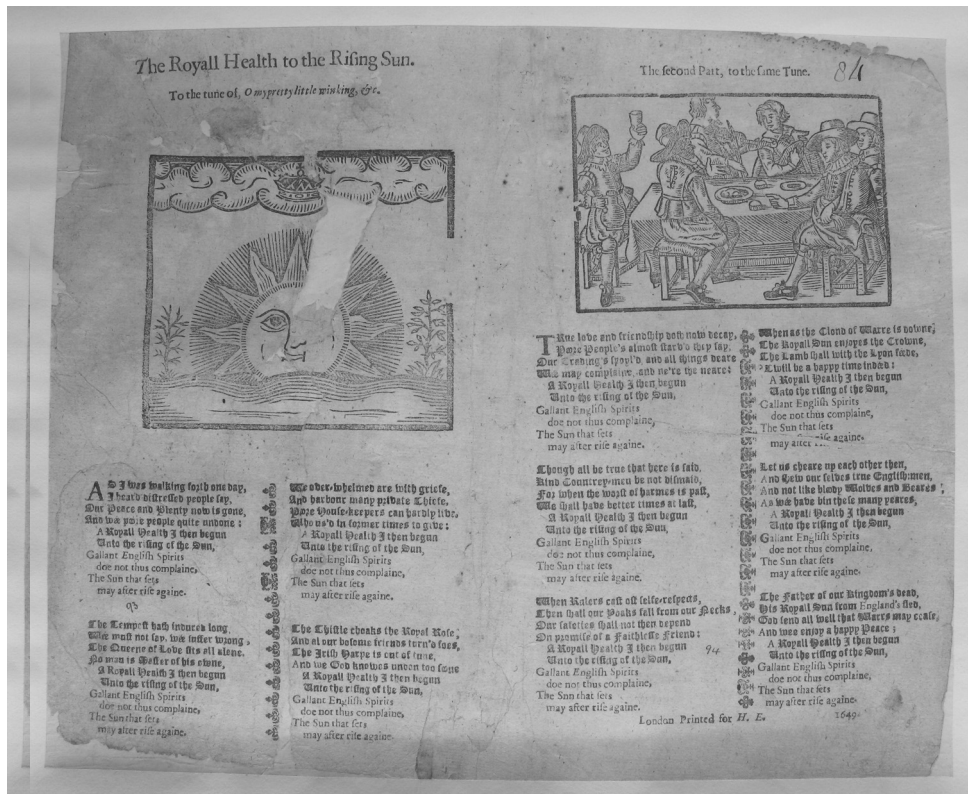 The Royall Health to the Rising Sun.
To the tune of, O my pretty little winking, &c.
AS I was walking forth one day,
I heard distressed people say,
Our Peace and Plenty now is gone,
And wee poore people quite undone:
A Royall Health I then begun
Unto the rising of the Sun,
Gallant English Spirits
doe not thus complaine,
The Sun that sets
may after rise againe.
93
The Tempest hath indured long,
Wee must not say, we suffer wrong,
The Queene of Love sits all alone.
No man is Master of his owne,
A Royall Health I then begun
Unto the rising of the Sun,
Gallant English Spirits
doe not thus complaine,
The Sun that sets
may after rise againe.
We over-whelmed are with griefe,
And harbour many private Thiefe.
Poore House-keepers can hardly live,
Who us'd in former times to give:
A Royall Health I then begun
Unto the rising of the Sun,
Gallant English Spirits
doe not thus complaine,
The Sun that sets
may after rise againe.
The Thistle choaks the Royal Rose,
And al our bosome friends turn'd foes,
The Irish Harpe is out of tune,
And we God knowes undon too soone
A Royall Health I then begun
Unto the rising of the Sun,
Gallant English Spirits
doe not thus complaine,
The Sun that sets
may after rise againe.
The second Part, to the same Tune.
84
TRue love and friendship doth now decay,
Poore People's almost starv'd they say,
Our Trading's spoyl'd, and all things deare
We may complaine, and ne're the neare:
A Royall Health I then begun
Unto the rising of the Sun,
Gallant English Spirits
doe not thus complaine,
The Sun that sets
may after rise againe.
Though all be true that here is said,
Kind Countrey-men be not dismaid,
For when the worst of harmes is past,
We shall have better times at last,
A Royall Health I then begun
Unto the rising of the Sun,
Gallant English Spirits
doe not thus complaine,
The Sun that sets
may after rise againe.
When Rulers cast off selfe-respects,
Then shall our Yoaks fall from our Necks,
Our safeties shall not then depend
On promise of a Faithlesse Friend:
A Royall Health I then begun
Unto the rising of the Sun,
Gallant English Spirits
doe not thus complaine,
The Sun that sets
may after rise againe.
94
When as the Cloud of Warre is downe,
The Royall Sun enjoyes the Crowne,
The Lamb shall with the Lyon feede,
'Twill be a happy time indeed:
A Royall Health I then begun
Unto the rising of the Sun,
Gallant English Spirits
doe not thus complaine,
The Sun that sets
may after rise againe.
Let us cheare up each other then,
And shew our selves true English-men,
And not like bloody Wolves and Beares,
As we have bin these many yeares,
A Royall Health I then begun
Unto the rising of the Sun,
Gallant English Spirits
doe not thus complaine,
The Sun that sets
may after rise againe.
The Father of our Kingdom's dead,
His Royall Sun from England's fled,
God send all well that Warrs may cease,
And wee enjoy a happy Peace;
A Royall Health I then begun
Unto the rising of the Sun,
Gallant English Spirits
doe not thus complaine,
The Sun that sets
may after rise againe.
London Printed for H. E. 1649